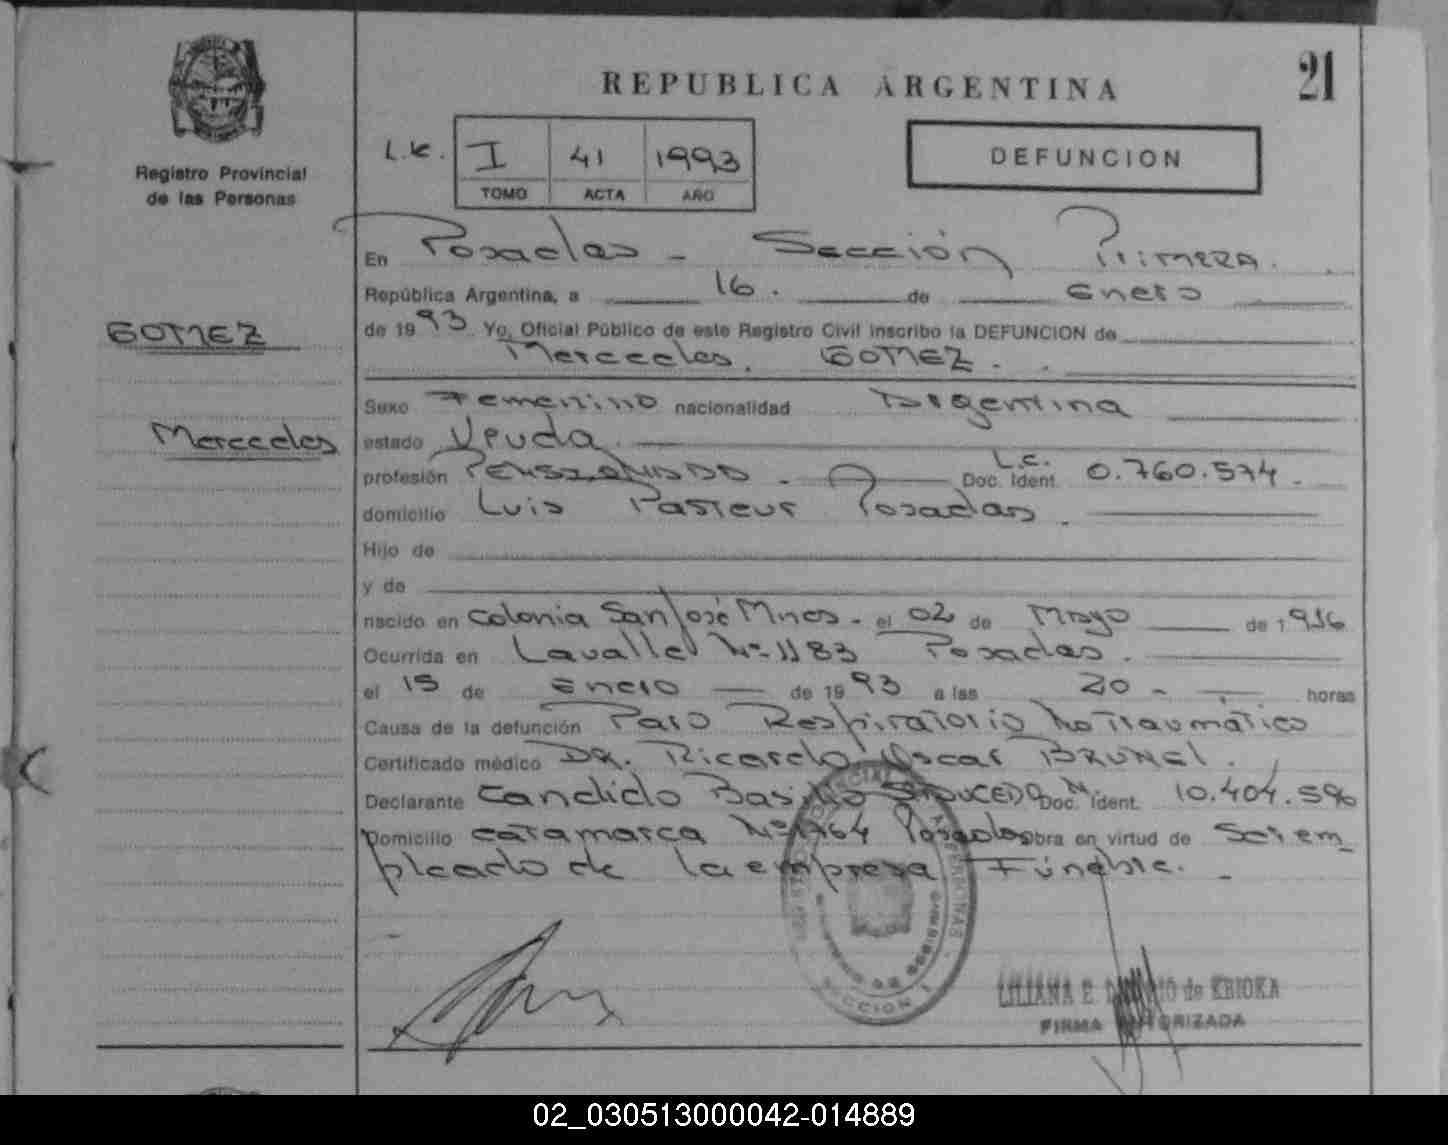 21
REPUBLICA ARGENTINA
Registro Provincial
de las Personas
L.E. I 41 1993
TOMO ACTA AÑO
DEFUNCION
En Posadas - Sección Primera.
República Argentina, a 16. de Enero
GOMEZ
de 1993 Yo, Oficial Público de este Registro Civil inscribo la DEFUNCION de
Mercedes. GOMEZ.
Sexo Femenino nacionalidad Argentina
Mercedes
estado Viuda.
profesión Doc. Ident. L.C. 0.760.574.
domicilio Luis Pasteur Posadas.
Hijo de
y de
nacido en Colonia San José Mnes. el 02 de Mayo de 1916
Ocurrida en Lavalle Nº 1183 Posadas.
el 15 de Enero de 1993 a las 20 - horas
Causa de la defunción Paro Respiratorio No Traumático
Certificado médico DR. Ricardo Oscar BRUNEL.
Declarante Candido Basilio Doc. Ident. 10.404.596
Domicilio Catamarca Nº 1764 Posadas obra en virtud de Ser em-
pleado de la empresa Fúnebre.
SECCION 1
LILIANA E. de KRIOKA
FIRMA AUTORIZADA
02_030513000042-014889